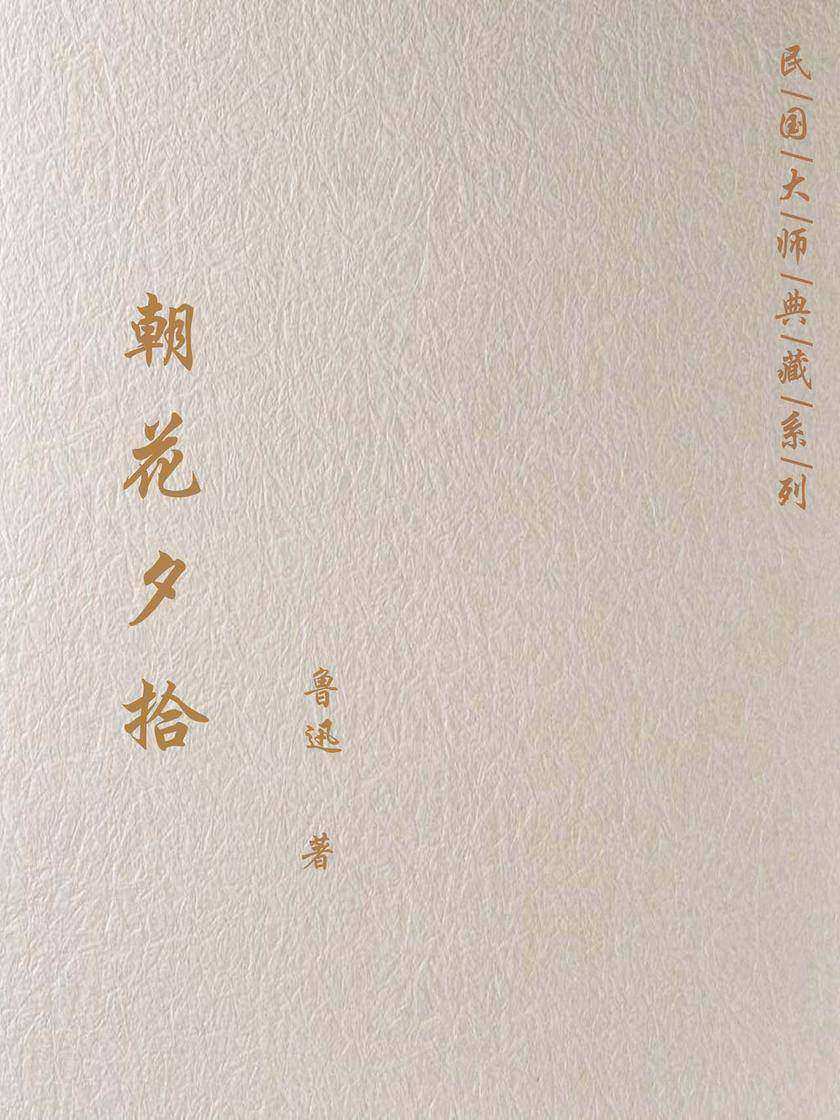 民/国/大/师/典/藏/系/列
朝花夕拾
鲁迅 著